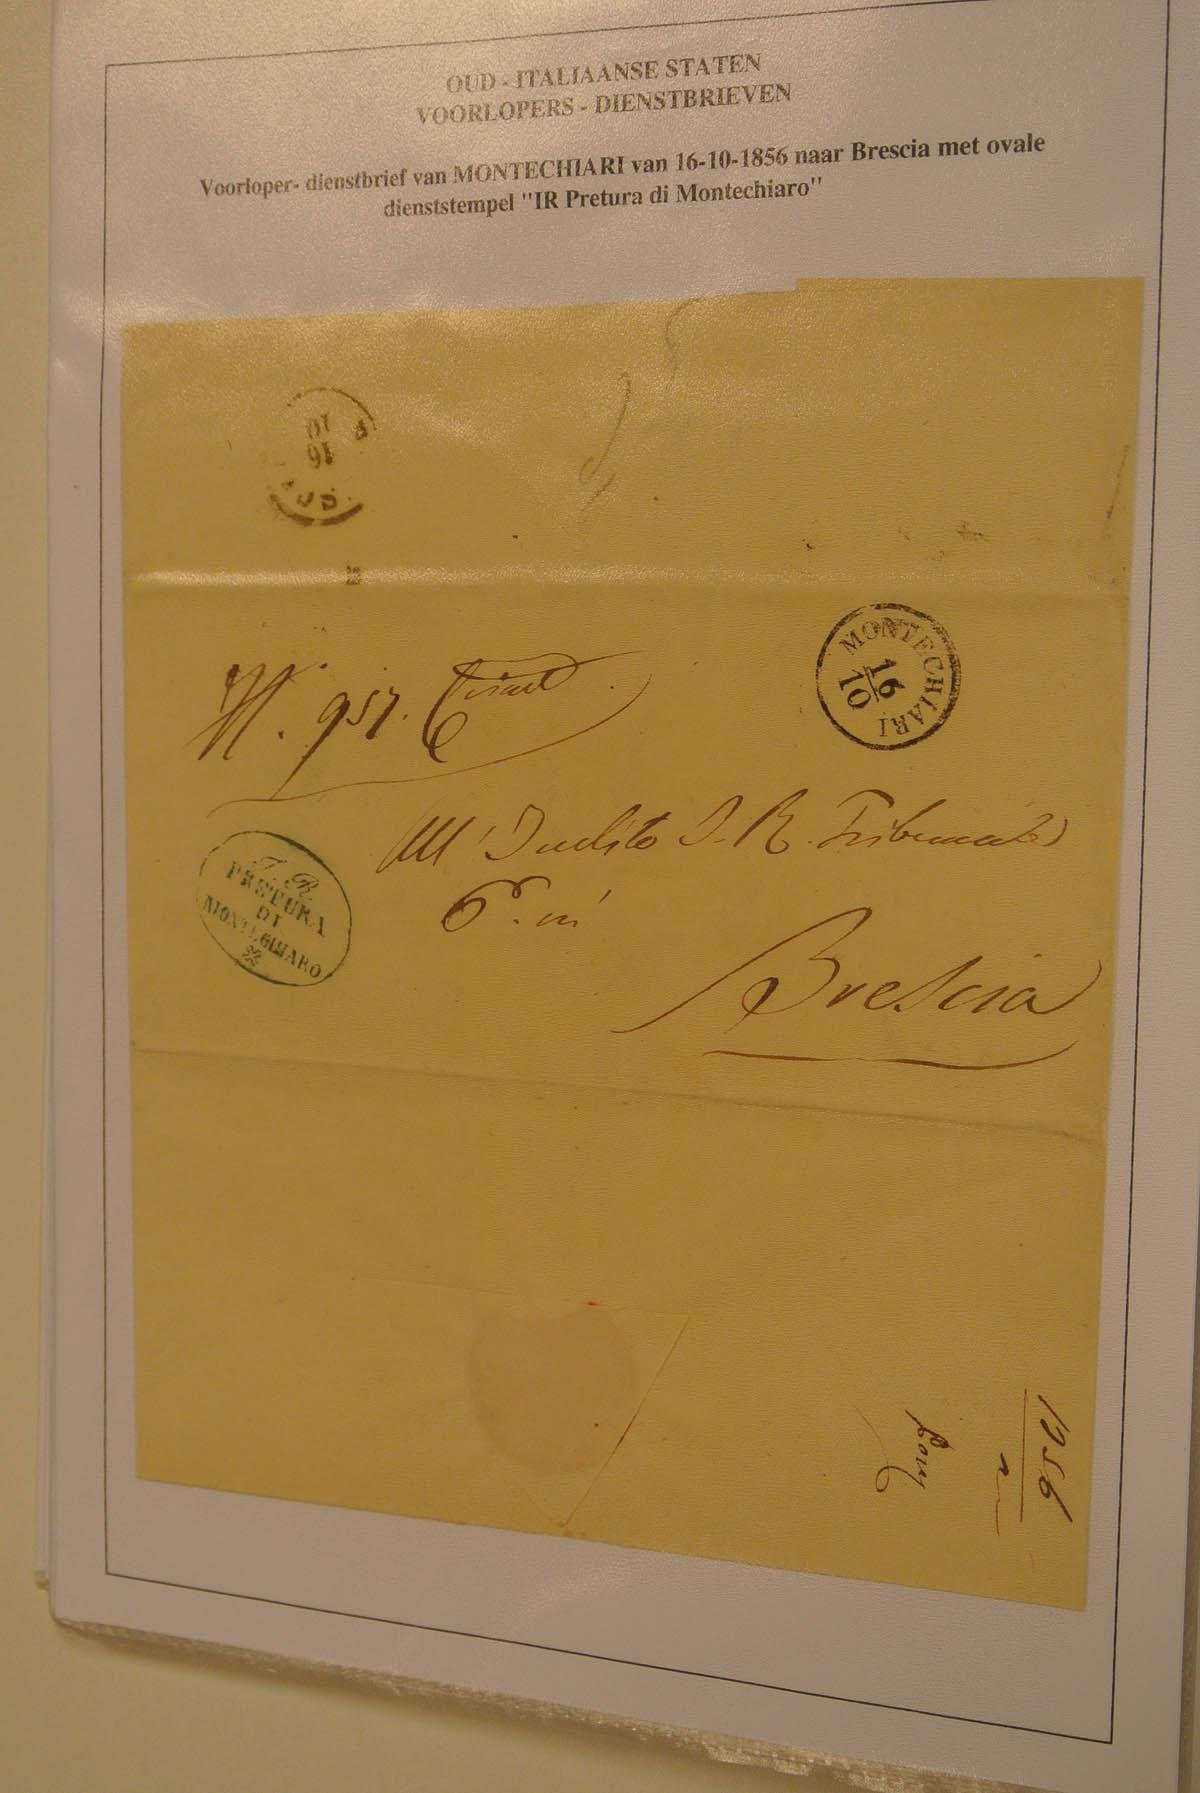 OUD - ITALIAANSE STATEN
VOORLOPERS - DIENSTBRIEVEN
Voorloper- dienstbrief van MONTECHIARI van 16-10-1856 naar Brescia met ovale
dienststempel "IR Pretura di Montechiaro"
10
16
N. 957.
MONTECHIARI
16
10
All' Inclito I. R. Tribunale
I. R.
PRETURA
DI
MONTECHIARO
Brescia